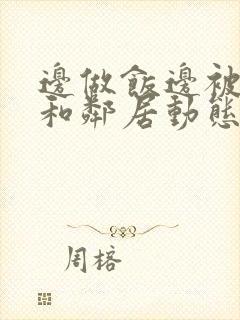 邊做飯邊被
和鄰居動態
周榕